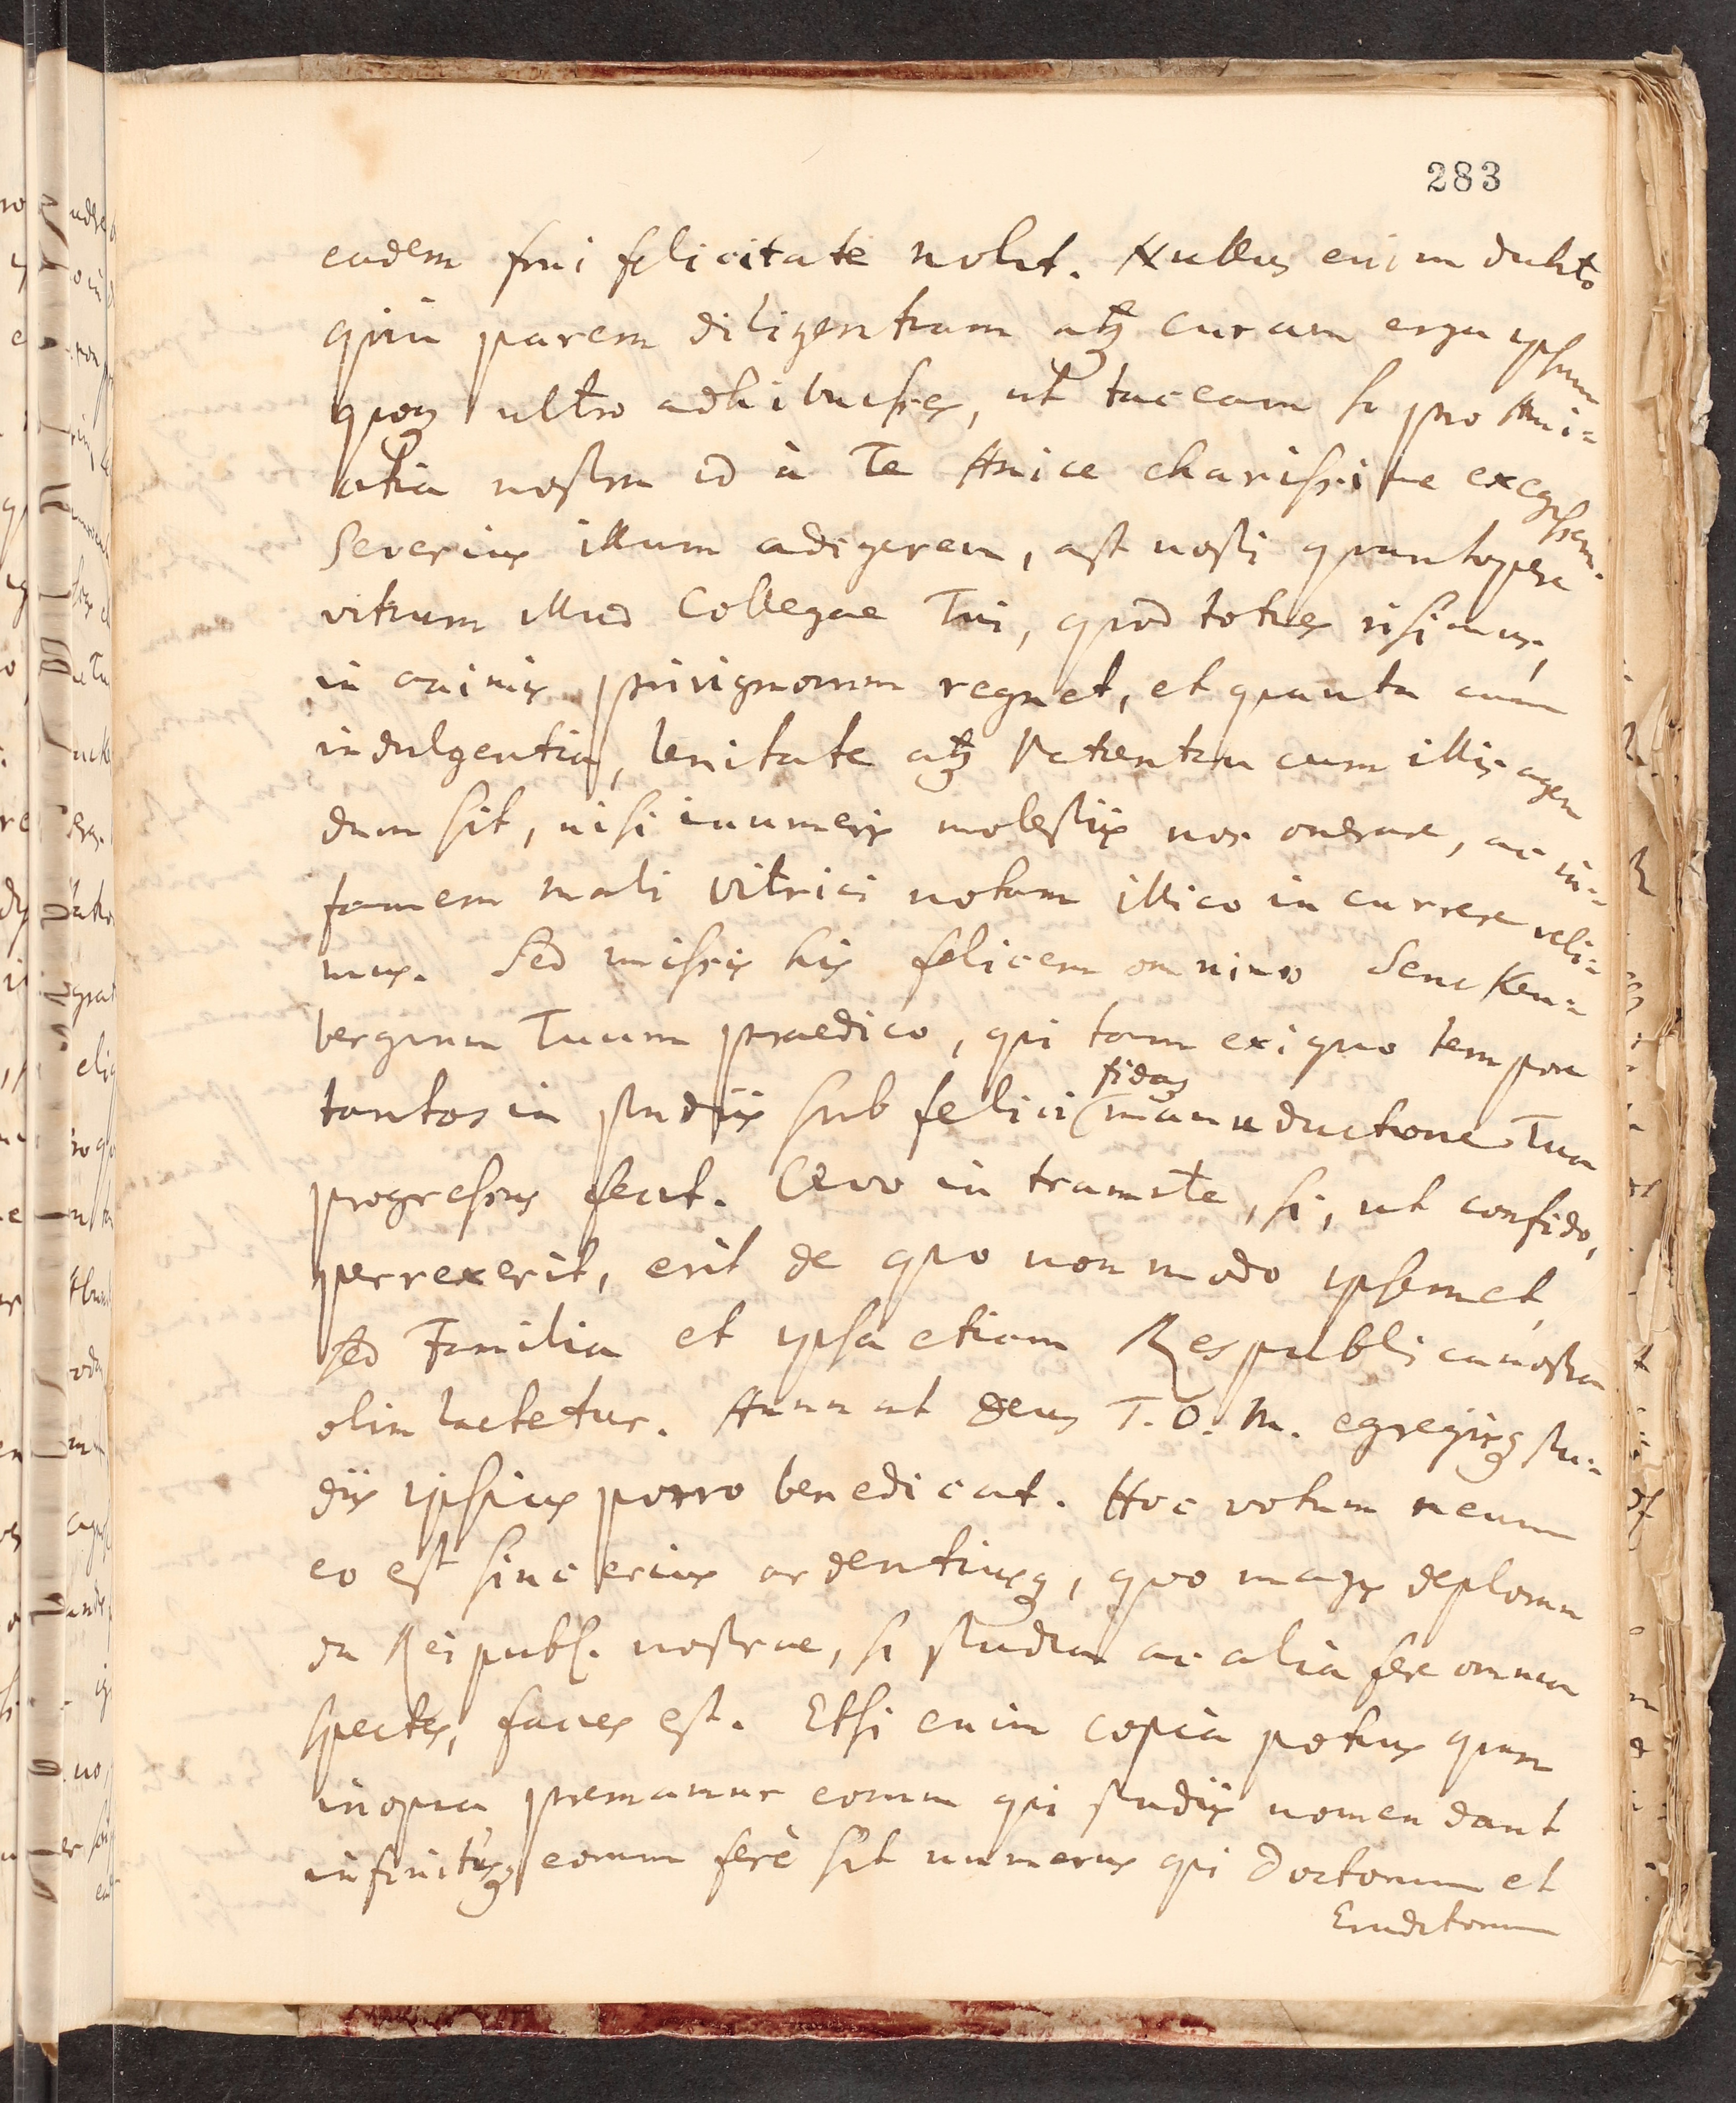 283
eadem frui felicitate noluit. Nullus enim dubito
quin parem diligentiam atq; curam erga ipsum
quoq; ultro adhibuisses, ut taceam si pro Ami-
citia nostra id à Te Amice charissime exegissem.
Severius illum adigerem, ast nosti quantopere
vitium illud Collegae Tui, quod toties risimus,
in animis privignorum regnet, et quanta cum
indulgentia, lenitate atq; Patientia cum illis agen
dum sit, nisi innumeris molestiis nos onerare, ac in-
famem mali vitrici notam illico incurrere veli-
mus. Sed missis his felicem omnino Sencken-
bergium Tuum praedico, qui tam exiguo tempore
tantos in studiis sub felici fidaq; manuductione Tua
progressus fecit. Quo in tramite, si, ut confido,
perrexerit, erit de quo non modo ipsemet,
sed Familia et ipsa etiam Respublica nostra
olim laetetur. Annuat Deus T. O. M. egregiisq; stu-
diis ipsius porro benedicat. Hoc votum meum
eo est sincerius ardentiusq;, quo magis deploran
da Reipubl. nostrae, si studia ac alia fere omnia
spectes, facies est. Etsi enim copia potius quam
inopia premamur eorum qui studiis nomen dant
infinitusq; eorum ferè sit numerus qui Doctorum et
Eruditorum